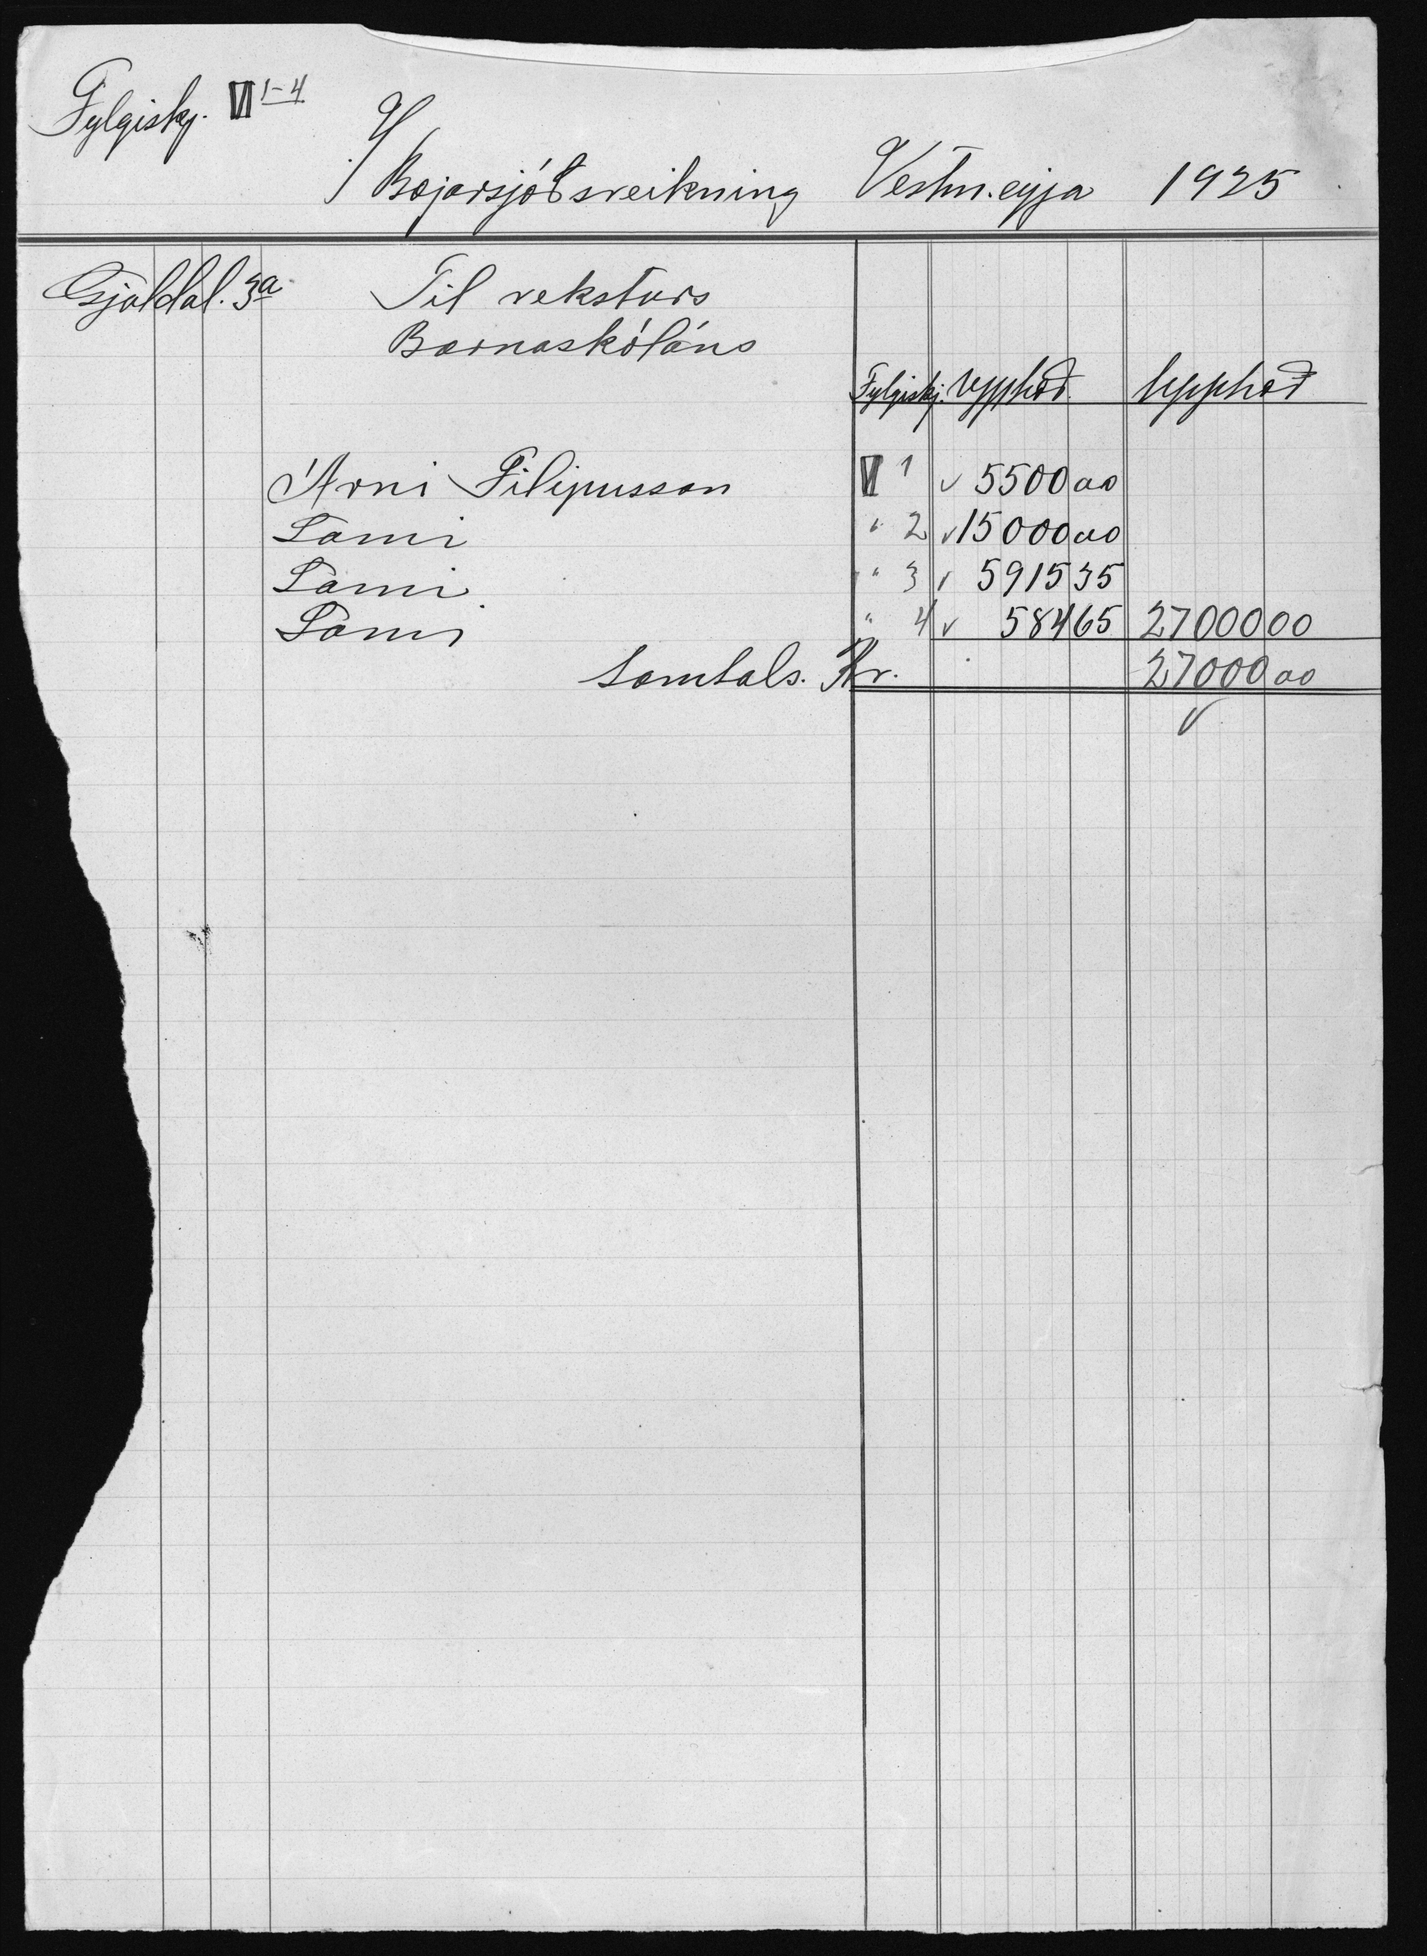 Fylgiskj. VI 1-4
V/ Bæjarsjóðsreikning Vestm.eyja 1925
Gjaldal. 3a Til reksturs
Barnaskólans
Fylgiskj. Upphæð. Upphæð
Árni Filipusson VI 1 ✓ 5500 00
Sami " 2 ✓ 15000 00
Sami. " 3 ✓ 5915 35
Sami " 4 ✓ 584 65 27000 00
Samtals. Kr. 27000 00
✓